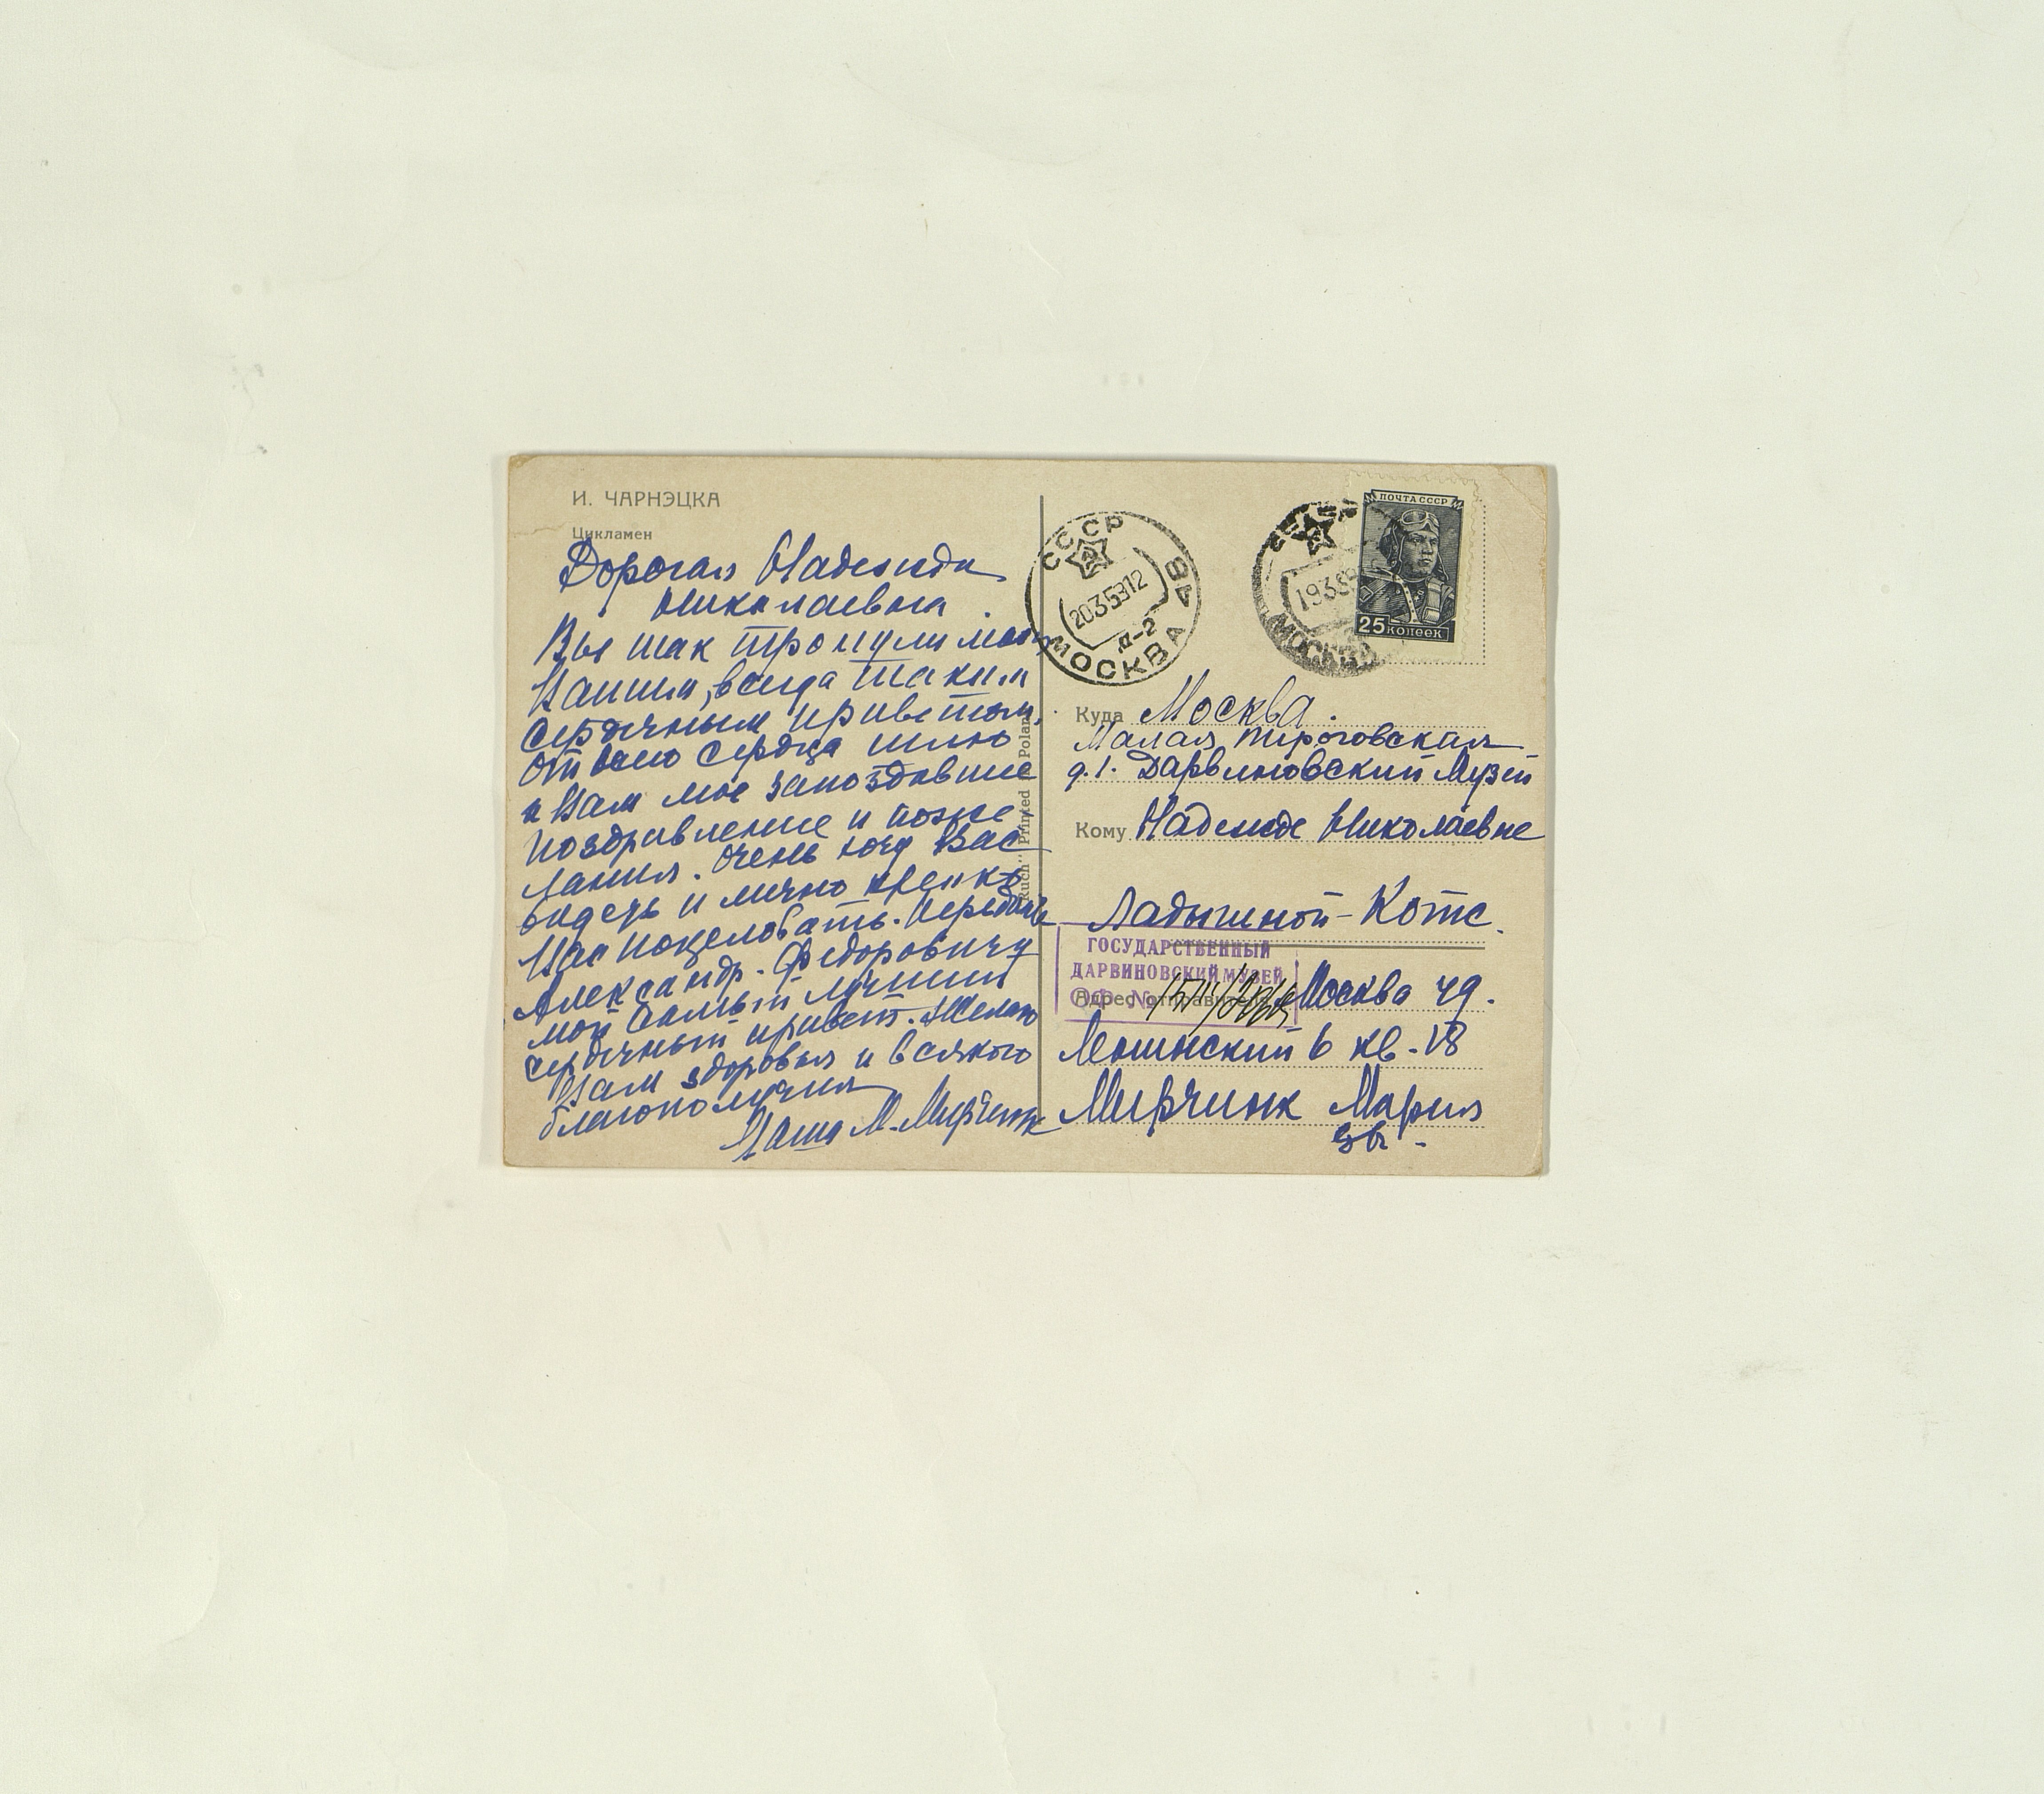 И. ЧАРНЭЦКА
Цикламен
Дорогая Надежда
Николаевна.
Вы так тронули меня
Вашим, всегда таким
сердечным приветом,
от всего сердца шлю
и Вам мое запоздавшие
поздравление и поже
лания. Очень хочу Вас
видеть и лично крепко
Вас поцеловать. Передайте
Александр. Федоровичу
мой самый лучший
сердечный привет. Желаю
Вам здоровья и всякого
благополучия
Ваша М. Мирчинк
"Ruch" Printed Poland
СССР
МОСКВА
20 3 59 12
Д-2
МОСКВА
19 3 59
ПОЧТА СССР
25 КОПЕЕК
Куда Москва.
Малая Пироговская
д. 1. Дарвиновский Музей
Кому Надежде Николаевне
Ладыгиной-Котс.
ГОСУДАРСТВЕННЫЙ
ДАРВИНОВСКИЙ МУЗЕЙ
Адрес отправителя Москва 49.
Ленинский 6 кв. 18
Мирчинк Мария